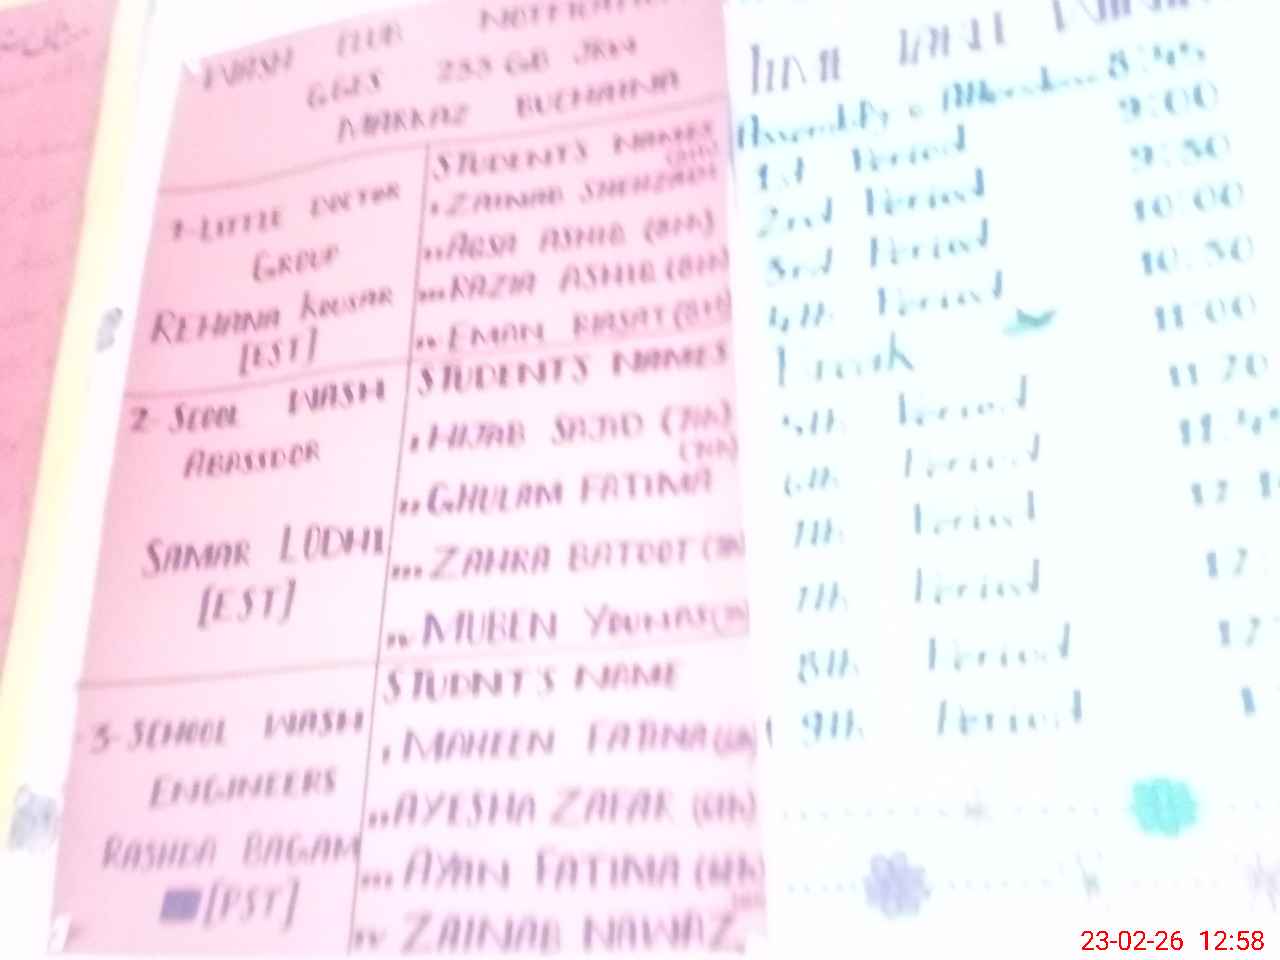 WASH CLUB
GGES 233 GB JRW
MARKAZ BUCHAINA
1-LITTLE DOCTOR
GROUP
REHANA KOUSAR
[EST]
STUDENT'S NAMES
ZAINAB SHEHZADI
AQSA ASHIQ (8th)
RAZIA ASHIQ (8th)
EMAN RIASAT (8th)
2-SCOOL WASH
ABASSDOR
SAMAR LODHI
[EST]
STUDENT'S NAMES
HIJAB SAJAD (7th)
(7th)
GHULAM FATIMA
ZAHRA BATOOT (7th)
MUBEN YOUNAS (7th)
3-SCHOOL WASH
ENGINEERS
RASHDA BAGAM
[PST]
STUDNT'S NAME
MAHEEN FATIMA (6th)
AYESHA ZAFAR (6th)
AYAN FATIMA (6th)
ZAINAB NAWAZ
TIME TABLE
Assembly 8:45
1st Period 9:00
2nd Period 9:30
3rd Period 10:00
4th Period 10:30
Break 11:00
5th Period 11:20
6th Period
7th Period
7th Period
8th Period
9th Period
23-02-26 12:58